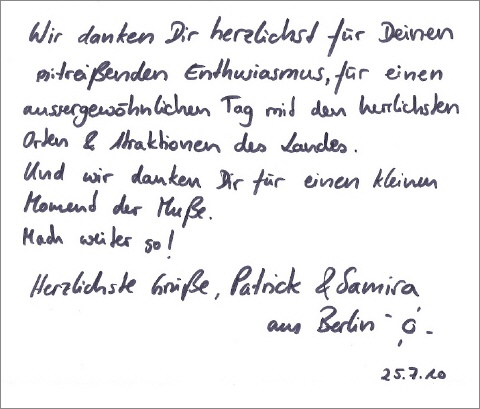 Wir danken Dir herzlichst für Deinen
mitreißenden Enthusiasmus, für einen
aussergewöhnlichen Tag mit den herrlichsten
Orten & Atraktionen des Landes.
Und wir danken Dir für einen kleinen
Momend der Muße.
Mach weiter so!
Herzlichste Grüße, Patrick & Samira
aus Berlin
25.7.10